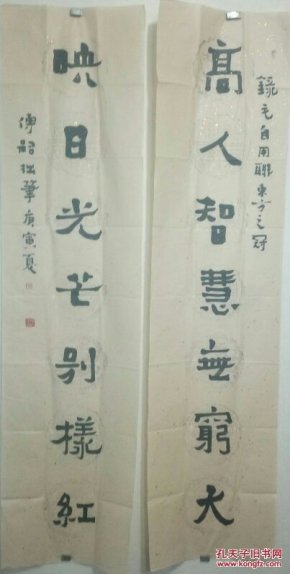 錄毛自用聯東方之冠
高人智慧無窮大
映日光芒别樣紅
傅韶拙筆庚寅夏
孔夫子旧书网
kongfz.com